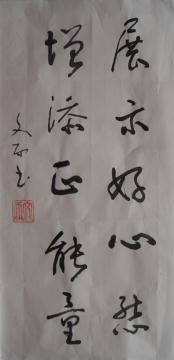 展示好心態
增添正能量
文 书